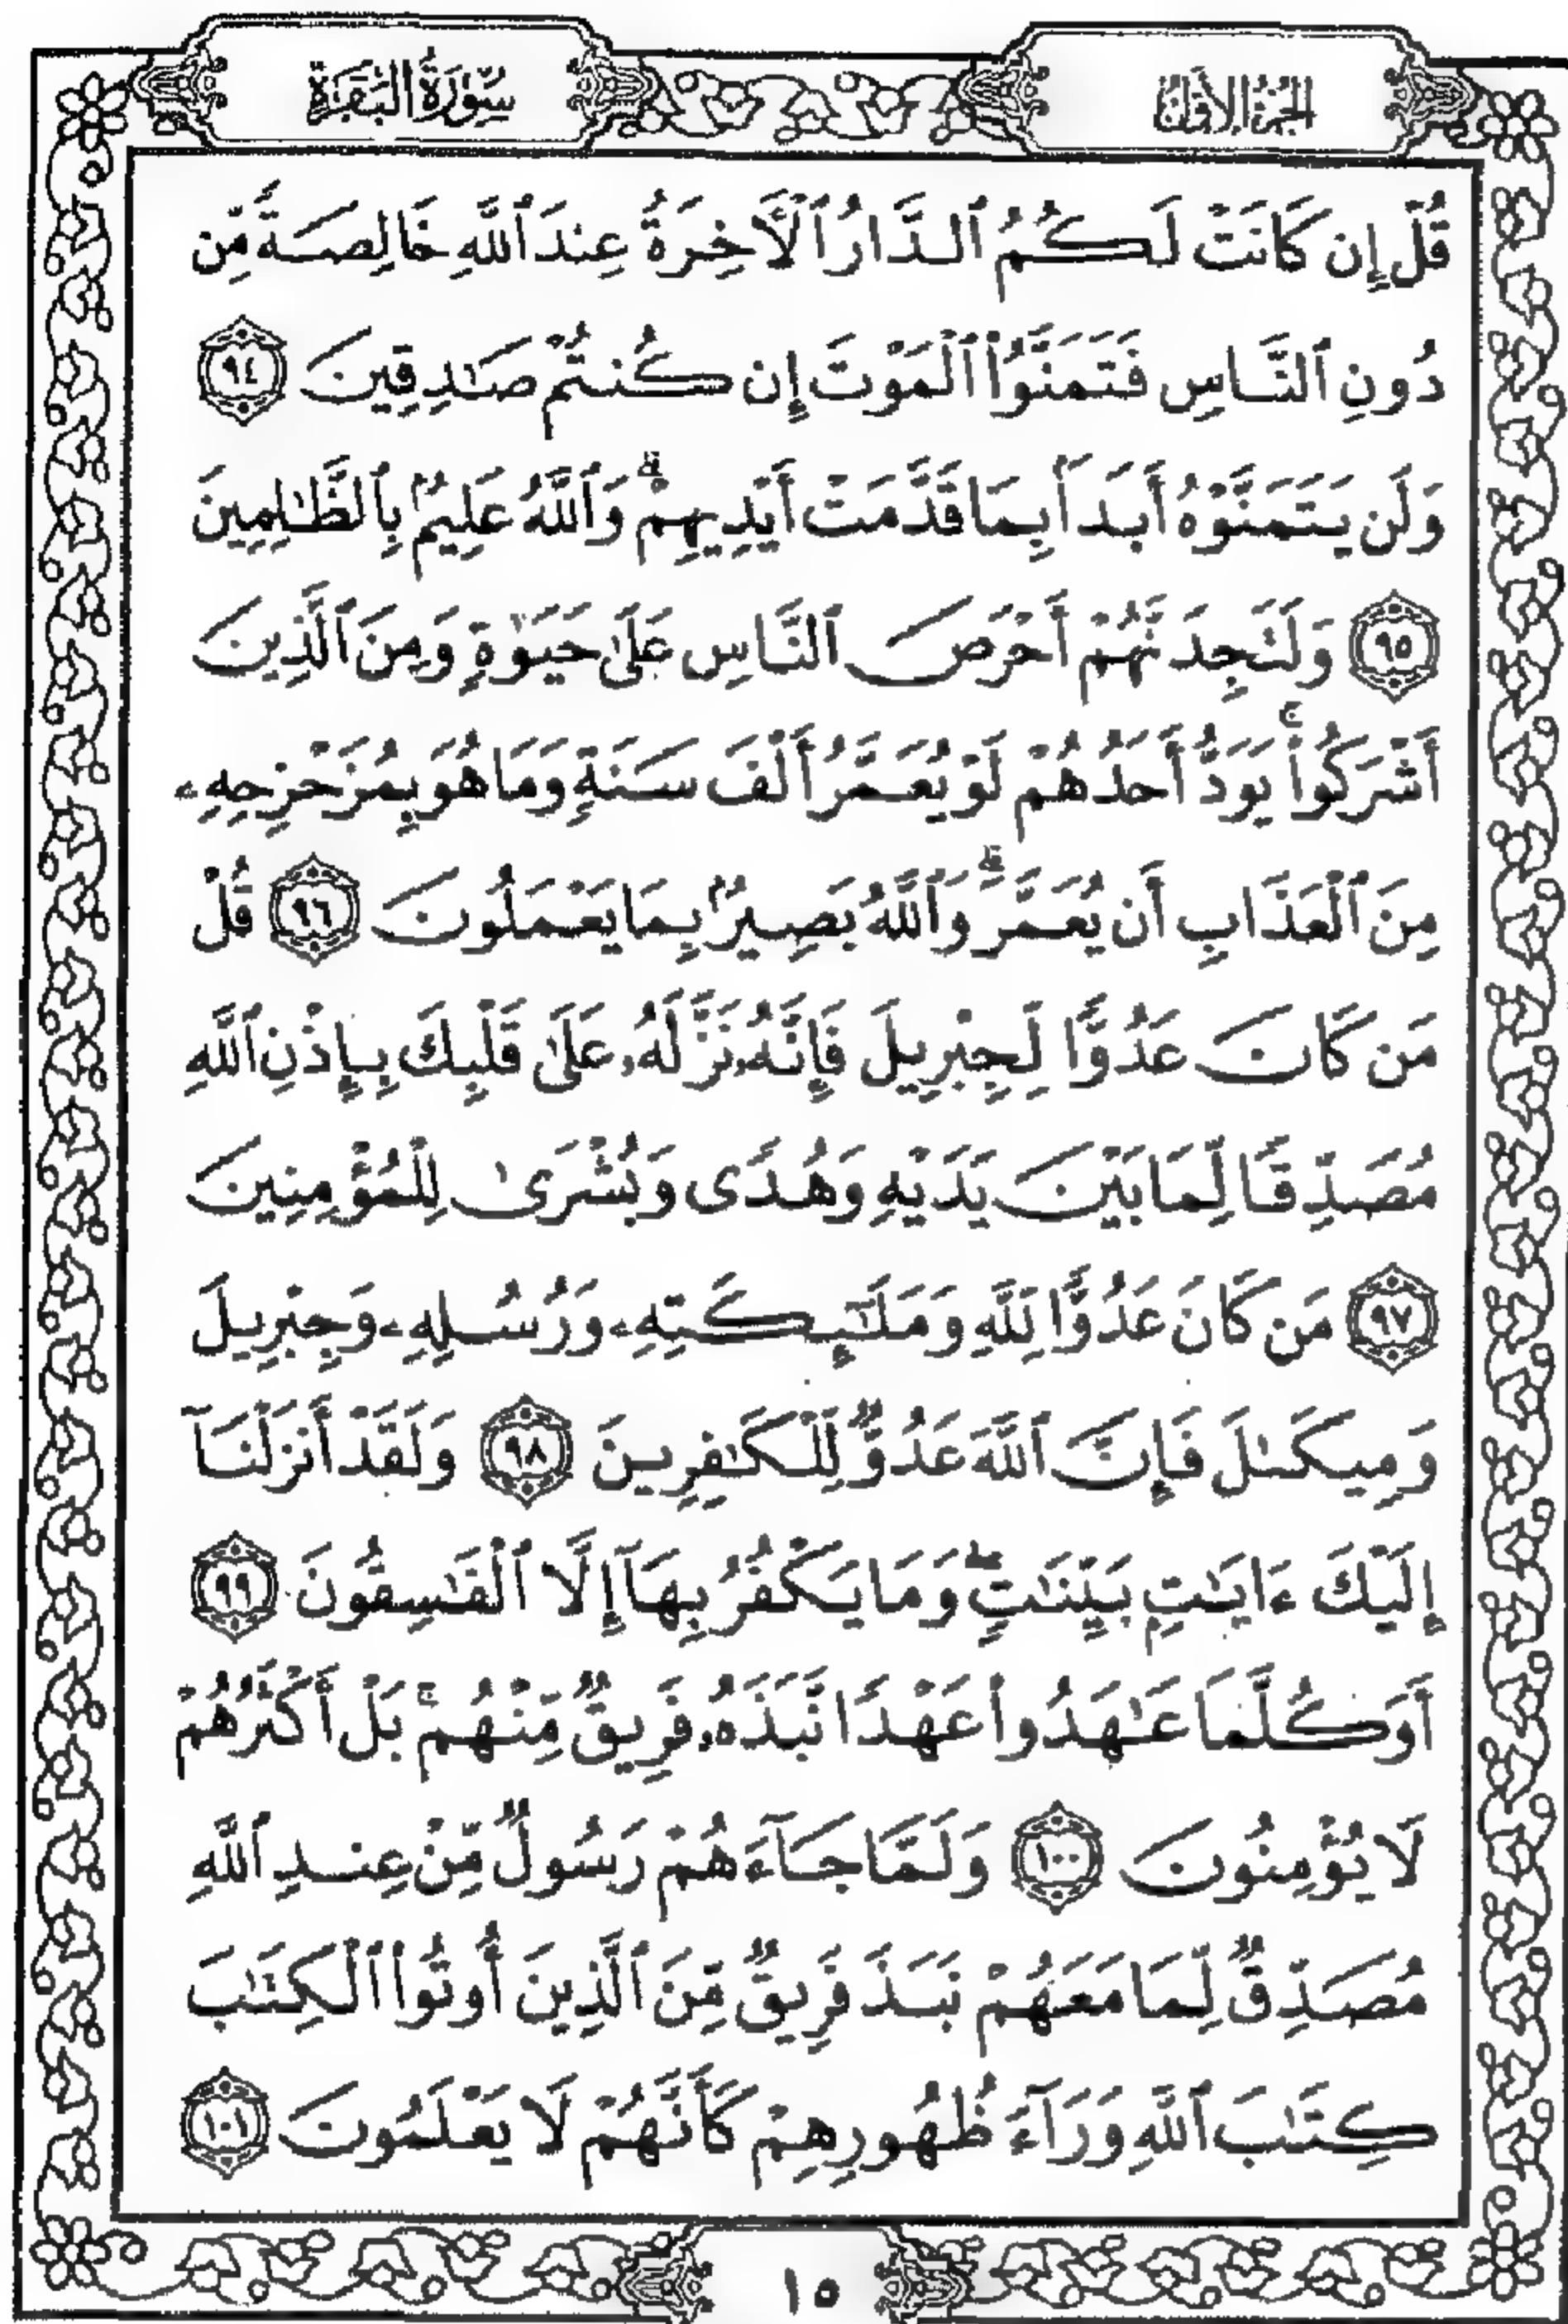 الجزء الأول
سورة البقرة
قُلْ إِن كَانَتْ لَكُمُ ٱلدَّارُ ٱلْأَخِرَةُ عِندَ ٱللَّهِ خَالِصَةً مِّن
دُونِ ٱلنَّاسِ فَتَمَنَّوُا۟ ٱلْمَوْتَ إِن كُنتُمْ صَـٰدِقِينَ ٩٤
وَلَن يَتَمَنَّوْهُ أَبَدًۢا بِمَا قَدَّمَتْ أَيْدِيهِمْ ۗ وَٱللَّهُ عَلِيمٌۢ بِٱلظَّـٰلِمِينَ
٩٥ وَلَتَجِدَنَّهُمْ أَحْرَصَ ٱلنَّاسِ عَلَىٰ حَيَوٰةٍ وَمِنَ ٱلَّذِينَ
أَشْرَكُوا۟ ۚ يَوَدُّ أَحَدُهُمْ لَوْ يُعَمَّرُ أَلْفَ سَنَةٍ وَمَا هُوَ بِمُزَحْزِحِهِۦ
مِنَ ٱلْعَذَابِ أَن يُعَمَّرَ ۗ وَٱللَّهُ بَصِيرٌۢ بِمَا يَعْمَلُونَ ٩٦ قُلْ
مَن كَانَ عَدُوًّا لِّجِبْرِيلَ فَإِنَّهُۥ نَزَّلَهُۥ عَلَىٰ قَلْبِكَ بِإِذْنِ ٱللَّهِ
مُصَدِّقًا لِّمَا بَيْنَ يَدَيْهِ وَهُدًى وَبُشْرَىٰ لِلْمُؤْمِنِينَ
٩٧ مَن كَانَ عَدُوًّا لِّلَّهِ وَمَلَـٰٓئِكَتِهِۦ وَرُسُلِهِۦ وَجِبْرِيلَ
وَمِيكَىٰلَ فَإِنَّ ٱللَّهَ عَدُوٌّ لِّلْكَـٰفِرِينَ ٩٨ وَلَقَدْ أَنزَلْنَآ
إِلَيْكَ ءَايَـٰتٍۭ بَيِّنَـٰتٍ ۖ وَمَا يَكْفُرُ بِهَآ إِلَّا ٱلْفَـٰسِقُونَ ٩٩
أَوَكُلَّمَا عَـٰهَدُوا۟ عَهْدًا نَّبَذَهُۥ فَرِيقٌ مِّنْهُم ۚ بَلْ أَكْثَرُهُمْ
لَا يُؤْمِنُونَ ١٠٠ وَلَمَّا جَآءَهُمْ رَسُولٌ مِّنْ عِندِ ٱللَّهِ
مُصَدِّقٌ لِّمَا مَعَهُمْ نَبَذَ فَرِيقٌ مِّنَ ٱلَّذِينَ أُوتُوا۟ ٱلْكِتَـٰبَ
كِتَـٰبَ ٱللَّهِ وَرَآءَ ظُهُورِهِمْ كَأَنَّهُمْ لَا يَعْلَمُونَ ١٠١
١٥